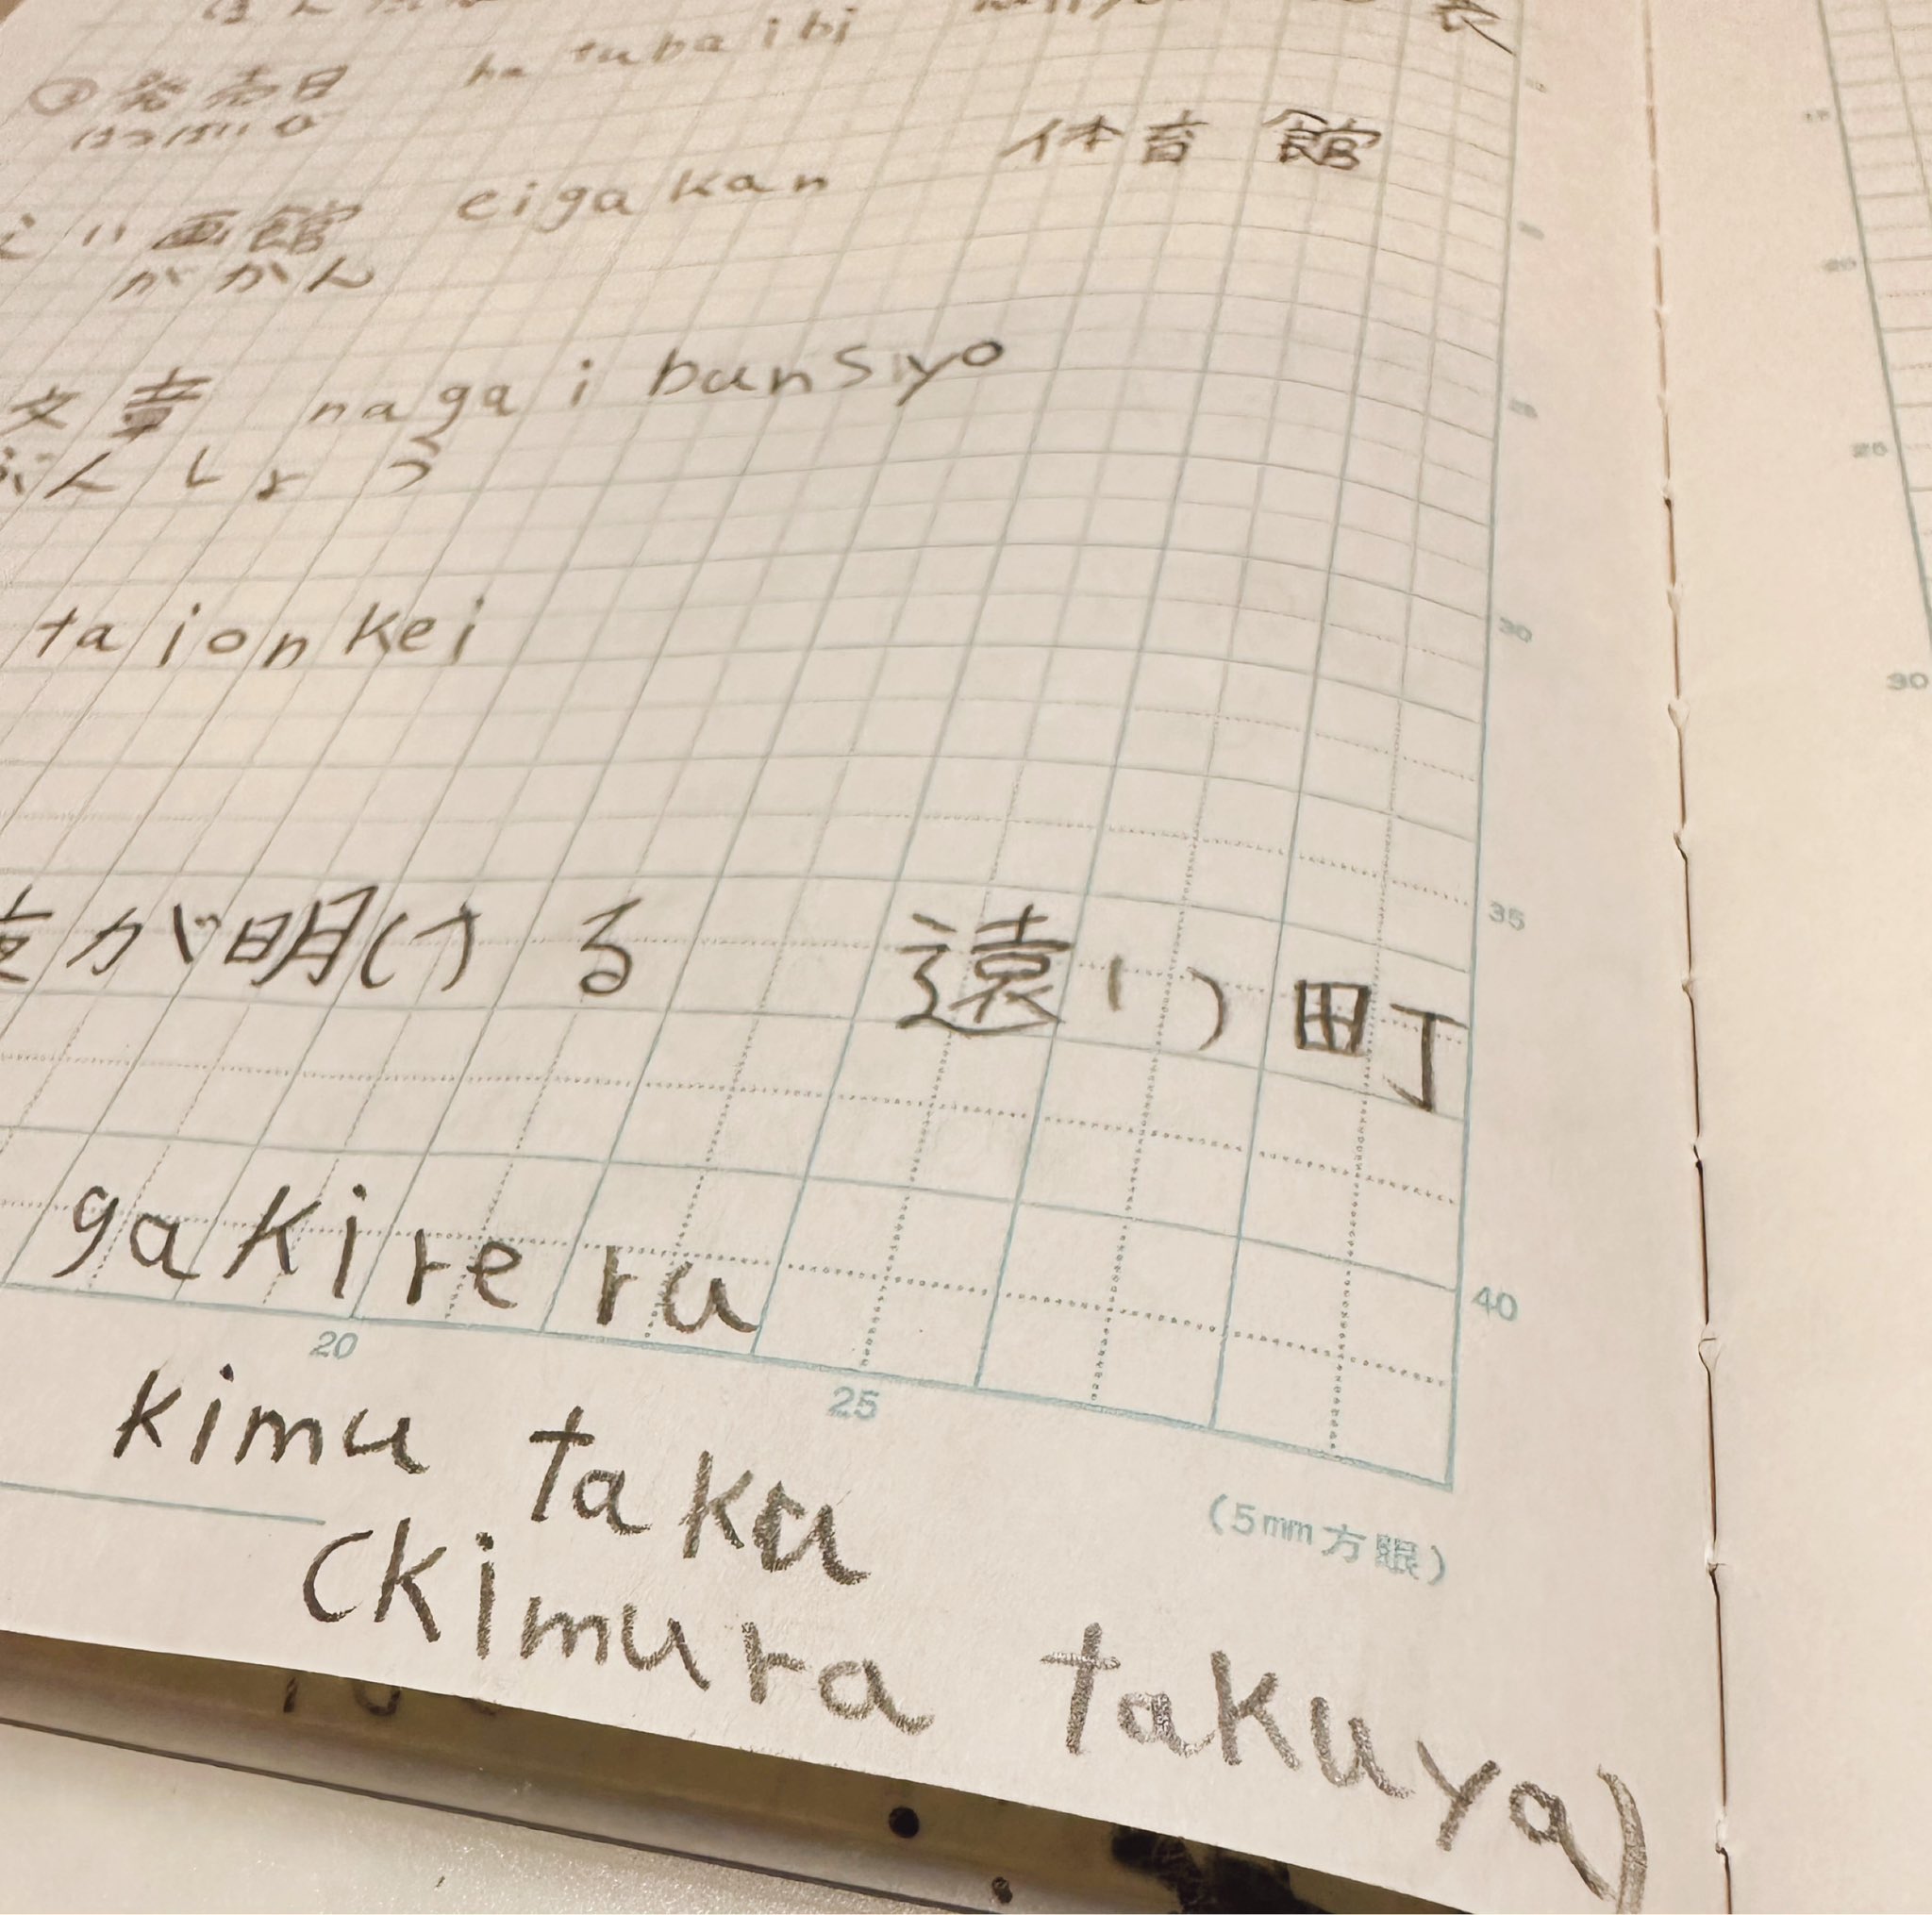 ③発売日 hatubaibi
はつばい日 体育館
えい画館 eigakan
がかん
文章 nagai bunsiyo
ぶんしょう
taionkei
夜が明ける 遠い町
gakireru
kimutaku
(kimura takuya)
20
25
(5mm方眼)
30
35
40
20
25
30